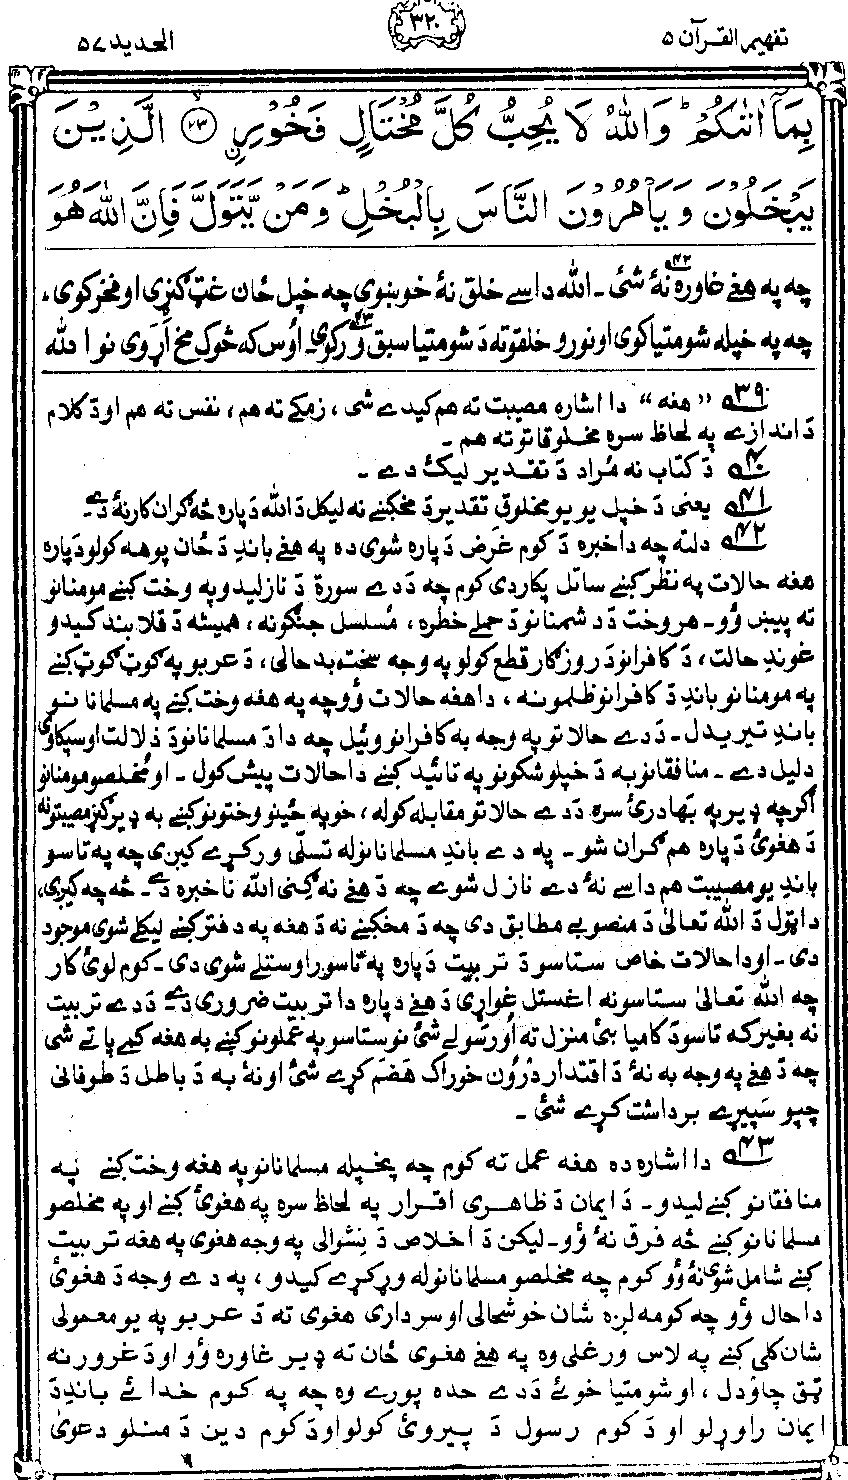 تفهیم القرآن ۵
۳۲۰
الحدید ۵۷
بِمَآ اٰتٰىكُمْ ؕ وَاللّٰهُ لَا يُحِبُّ كُلَّ مُخْتَالٍ فَخُوْرِ ۨ ۲۳ الَّذِيْنَ
يَبْخَلُوْنَ وَيَاْمُرُوْنَ النَّاسَ بِالْبُخْلِ ؕ وَمَنْ يَّتَوَلَّ فَاِنَّ اللّٰهَ هُوَ
چه په هغے غاوره نۀ شئ ۔ الله داسے خلق نۀ خوښوی چه خپل ځان غټ ګنړی او فخر کوی،
چه په خپله شومتیا کوی او نورو خلقو ته دَ شومتیا سبق ورکوی ۔ اوس که څوک مخ اړوی نو الله
۳۹ “هغه” دا اشاره مصیبت ته هم کیدے شی، زمکے ته هم، نفس ته هم او دَ کلام
دَ اندازے په لحاظ سره مخلوقاتو ته هم ۔
۴۰ دَ کتاب نه مُراد دَ تقدیر لیک دے ۔
۴۱ یعنی دَ خپل یو یو مخلوق تقدیر دَ مخکښے نه لیکل دَ الله دَ پاره څه ګران کار نۀ دے ۔
۴۲ دلته چه دا خبره دَ کوم غرض دَ پاره شوی ده په هغے باندِ دَ ځان پوهه کولو دَ پاره
هغه حالات په نظر کښے ساتل پکار دی کوم چه دَ دے سورة دَ نازلیدو په وخت کښے مومنانو
ته پیښ وُو ۔ هر وخت دَ دشمنانو دَ حملے خطره، مُسلسل جنګونه، همیشه دَ قلابند کیدو
غوندِ حالت، دَ کافرانو دَ روزګار قطع کولو په وجه سخت بد حالی، دَ عربو په ګوټ ګوټ کښے
په مومنانو باندِ دَ کافرانو ظلمونه، دا هغه حالات وُو چه په هغه وخت کښے په مسلمانانو
باندِ تیریدل ۔ دَ دے حالاتو په وجه به کافرانو وئیل چه دا دَ مسلمانانو دَ ذلالت او سپکاوی
دلیل دے ۔ منافقانو به دَ خپلو شکونو په تائید کښے دا حالات پیش کول ۔ او مُخلصو مومنانو
اګرچه ډیر په بهادرئ سره دَ دے حالاتو مقابله کوله، خو په ځینو وختونو کښے به ډیر مصیبتونه
دَ هغوئ دَ پاره هم ګران شو ۔ په دے باندِ مسلمانانو له تسلّی ورکړے کیږی چه په تاسو
باندِ یو مصیبت هم داسے نۀ دے نازل شوے چه دَ هغے نه دِ الله ناخبره دے ۔ څه چه کیږی،
دا ټول دَ الله تعالیٰ دَ منصوبے مطابق دی چه دَ مخکښے نه دَ هغه په دفتر کښے لیکلے شوی موجود
دی ۔ او دا حالات خاص ستاسو دَ تربیت دَ پاره په تاسو راوستلے شوی دی ۔ کوم لوئ کار
چه الله تعالیٰ ستاسو نه اغستل غواړی دَ هغے دپاره دا تربیت ضروری دے ۔ دَ دے تربیت
نه بغیر که تاسو دَ کامیابئ منزل ته اُورسولے شئ نو ستاسو په عملونو کښے به هغه کمے پاتے شی
چه دَ هغے په وجه به نۀ دَ اقتدار دُرون خوراک هضم کړے شئ او نۀ به دَ باطل دَ طوفانی
چپو سَپیړے برداشت کړے شئ ۔
۴۳ دا اشاره ده هغه عمل ته کوم چه پخپله مسلمانانو په هغه وخت کښے په
منافقانو کښے لیدو ۔ دَ ایمان دَ ظاهری اقرار په لحاظ سره په هغوئ کښے او په مخلصو
مسلمانانو کښے څه فرق نۀ وُو ۔ لیکن دَ اخلاص دَ نِشوالی په وجه هغوی په هغه تربیت
کښے شامل شوی نۀ وُو کوم چه مخلصو مسلمانانو له ورکړے کیدو، په دے وجه دَ هغوئ
دا حال وُو چه کومه لږه شان خوشحالی او سرداری هغوی ته دَ عربو په یو معمولی
شان کلی کښے په لاس ورغلی وه په هغے هغوی ځان ته ډیر غاوره وُو او دَ غرور نه
ټټی چاودل، او شومتیا خوئے دَ دے حده پورے وه چه په کوم خدائے باندِ دَ
ایمان راوړلو او دَ کوم رسول دَ پیروئ کولو او دَ کوم دین دَ منلو دعویٰ